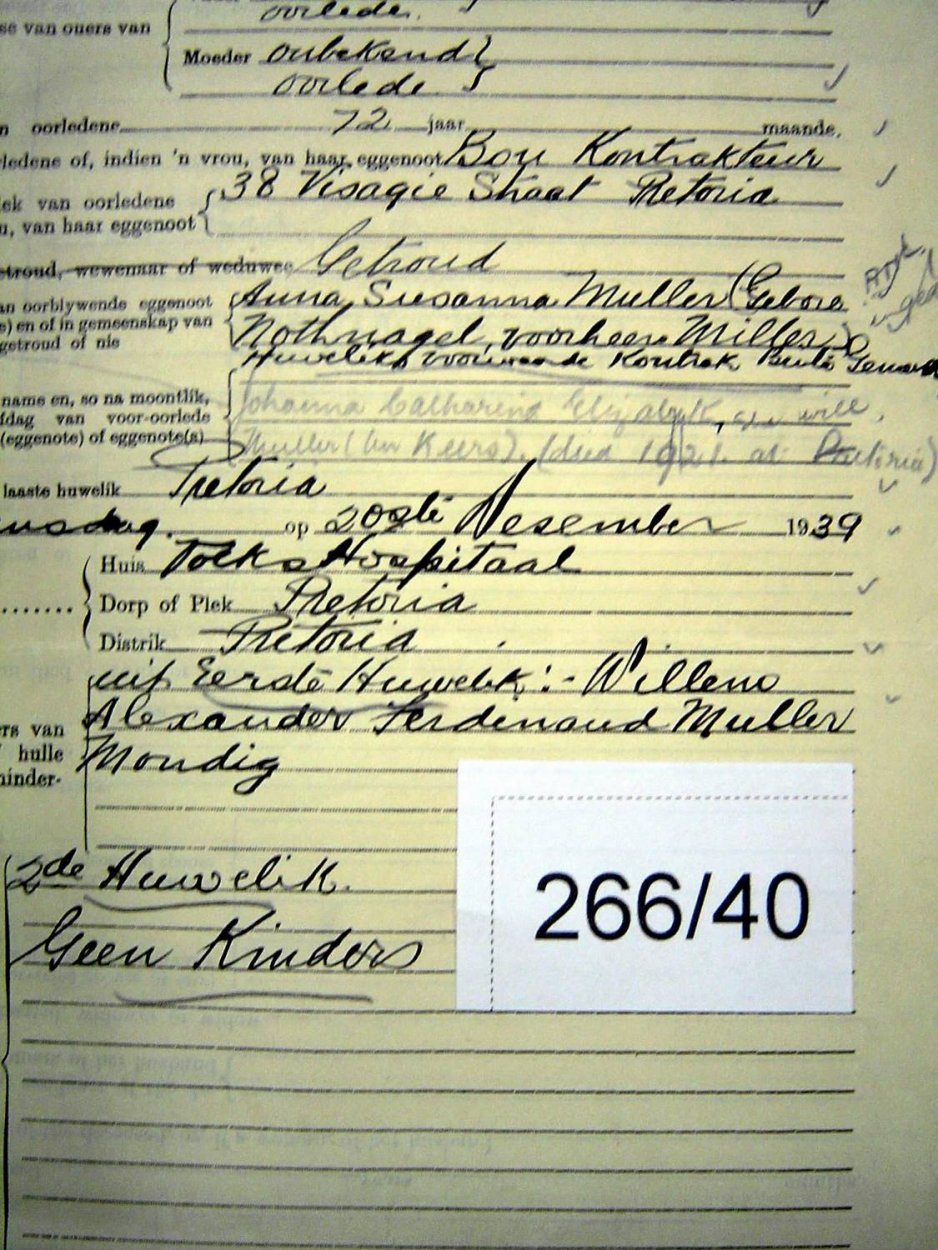 oorlede.
se van ouers van
Moeder onbekend
oorlede
oorledene 72 jaar maande.
ledene of, indien 'n vrou, van haar eggenoot Bou Kontrakteur
38 Visagie Straat Pretoria
ek van oorledene
, van haar eggenoot
etroud, wewenaar of weduwee Getroud
an oorblywende eggenoot Anna Susanna Muller (Gebore
e) en of in gemeenskap van Nothnagel, voorheen Miller)
getroud of nie
Huweliks voorwaarde Kontrak Buite
name en, so na moontlik, Johanna Catharina Elizabeth, will
fdag van voor-oorlede
(eggenote) of eggenote(s) Muller (Keers). (died 1921. at Pretoria)
laaste huwelik Pretoria
nsdag. op 20ste Desember 1939
Huis Volks Hospitaal
Dorp of Plek Pretoria
Distrik Pretoria
uit Eerste Huwelik:- Willem
Alexander Ferdinand Muller
rs van
hulle Mondig
inder-
2de Huwelik.
Geen Kinders
266/40